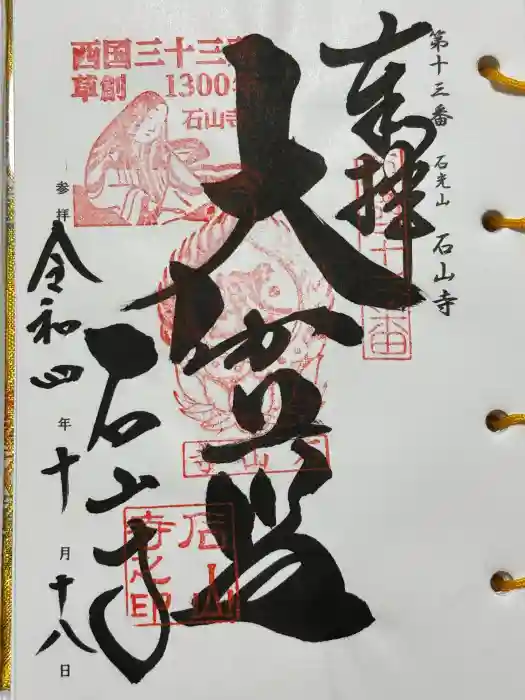 第十三番 石光山 石山寺
奉拝
大加芸
石山寺
参拝
令和四年十月十八日
西国三十三所
草創 1300年
石山寺
石山寺
石山
寺之印